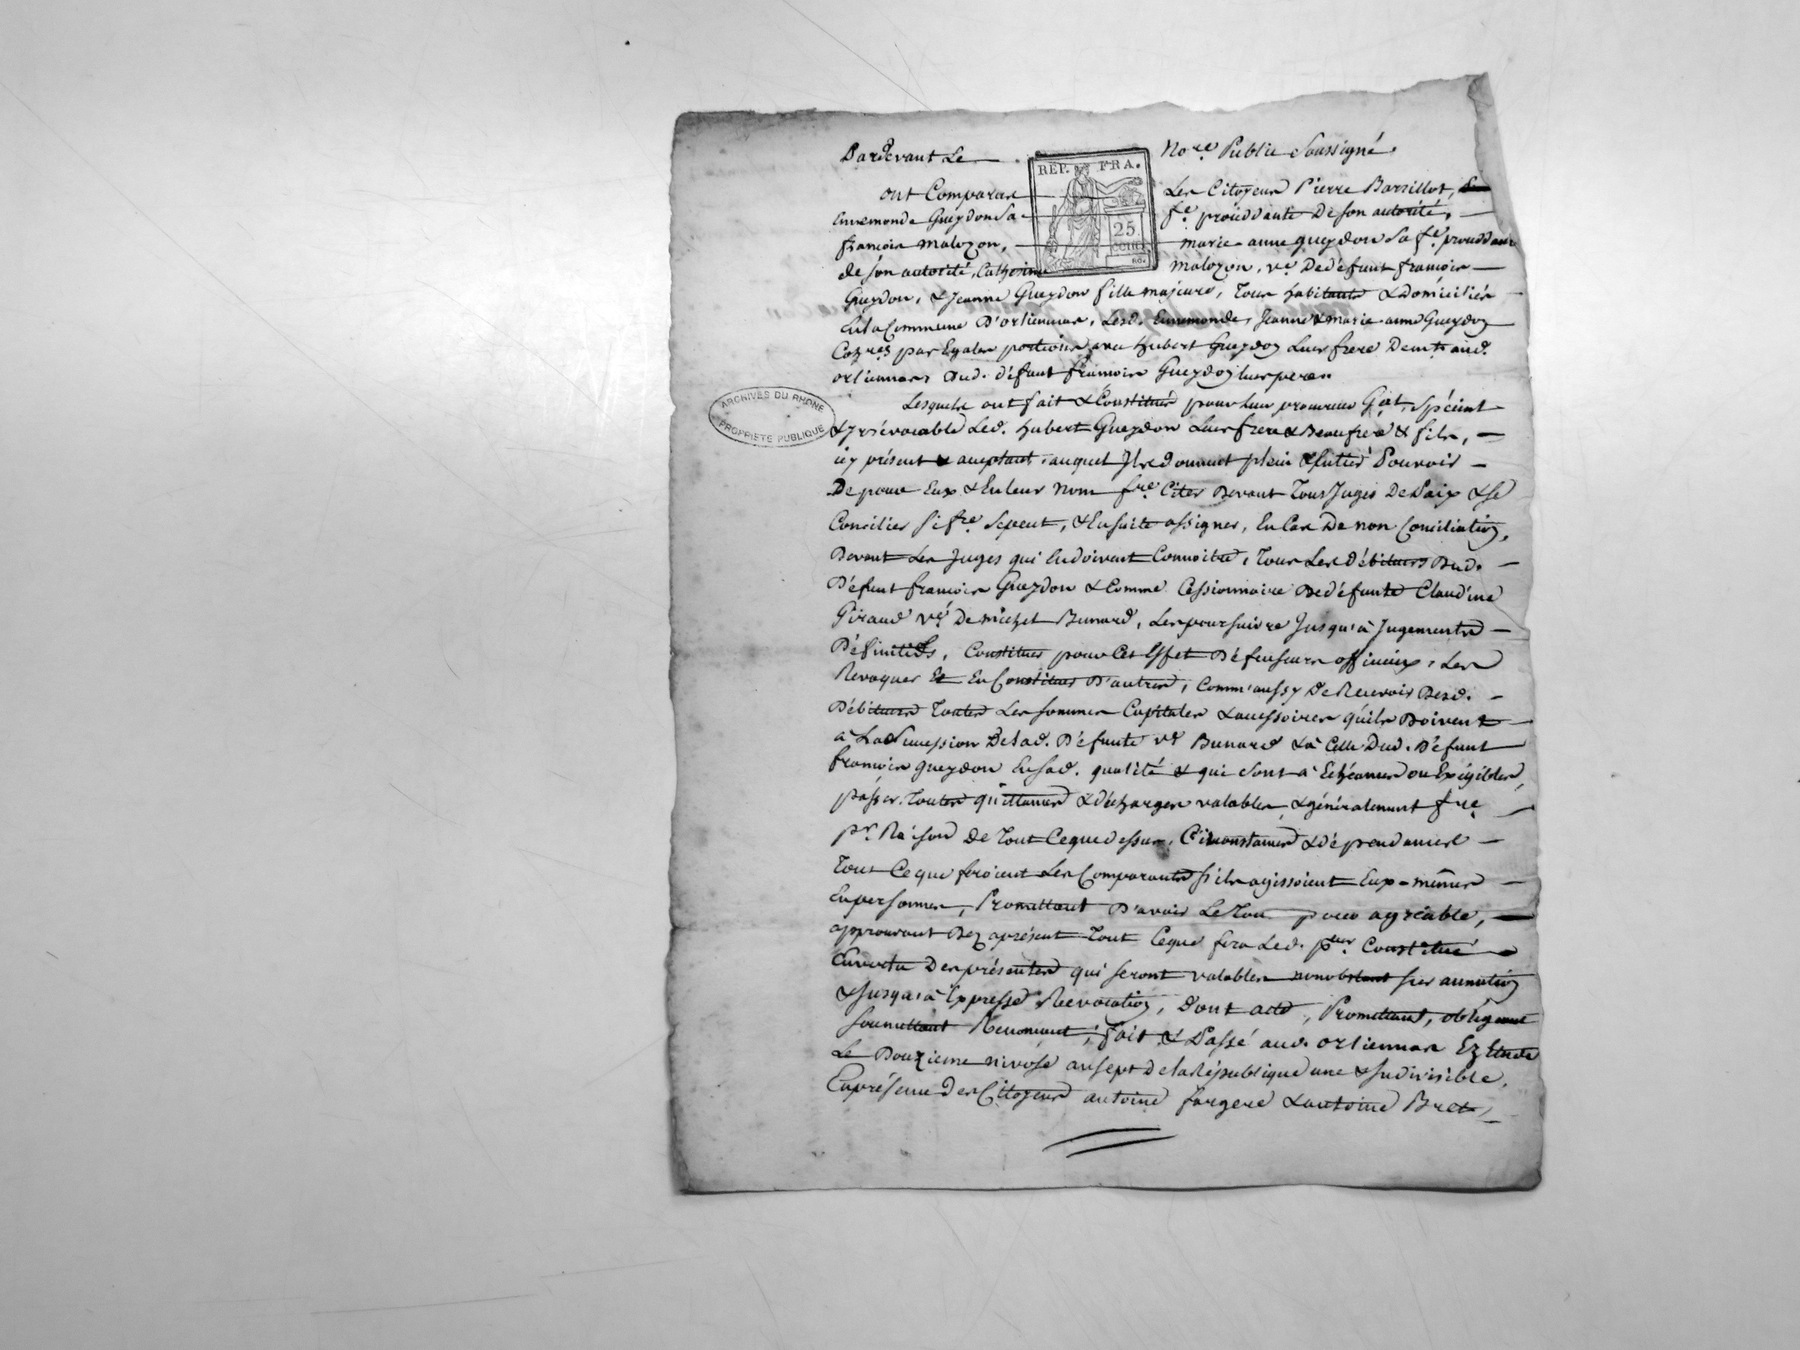 Pardevant Le No.re Public Soussigné.
REP. FRA.
25
CENT.
ont Comparus Les Citoyens Pierre Barsillot,
Ennemonde Gueydon Sa f.e prouddante De son autorité,
françois malozon, marie anne gueydon Sa f.e prouddante
de son autorité, Catherine malozon, v.e De défunt françois
Gueydon, & Jeanne Gueydon fille majeure, Tous habitants & Domiciliés
En la Commune D'orliennas, Lesd. Ennemonde, Jeanne & marie anne Gueydon
par Egales portions avec hubert Gueydon Leur frere Demt. aud.
orliennas, Dud. défunt françois Gueydon leur pere.
ARCHIVES DU RHONE
PROPRIETE PUBLIQUE
Lesquels ont fait & Constitué pour leur procureur Gñal, Spécial
& Irrévocable Led. hubert Gueydon Leur frere & Beaufrere & fils,
icy présent & acceptant, auquel Ils donnent plein & entier Pouvoir
De pour Eux & En leur nom f.re Citer Devant Tous Juges De Paix & se
Concilier si f.re se peut, & Ensuite assigner, En Cas De non Conciliation,
Devant Les Juges qui En doivent Connoitre, Tous Les débiteurs Dud.
Défunt françois Gueydon & Comme Cessionnaire De défunte Claudine
Giraud v.e De michel Bunard, Les poursuivre Jusqu'à Jugements
Définitifs, Constituer pour Cet Effet Défenseurs officieux, Les
Revoquer Et En Constituer D'autres, Comm'aussy De Recevoir Desd.
Débiteurs Toutes Les sommes Capitales & accessoires qu'ils Doivent
à La Succession De lad. Défunte v.e Bunard & à Celle Dud. Défunt
françois Gueydon En sad. qualité & qui sont à Echéances ou Exigibles,
passer Toutes quittances & décharges valables, & généralement f.re
p.r Raison de Tout Ce que dessus, Circonstances & dépendances
Tout Ce que feroient Les Comparants s'ils agissoient Eux-mêmes
En personnes, Promettant D'avoir Le Tout pour agréable,
approuvant Dez aprésent Tout Ce que fera Led. p.eur Constitué
En vertu Des présentes qui seront valables nonobstant sur annation
& Jusqu'à Expresse Revocation, Dont acte, Promettant, obligeant
Soumettant Renonçant, fait & Passé aud. orliennas Ez Etude
Le Douzieme nivose an sept de la République une & Indivisible,
En présence Des Citoyens antoine fargere & antoine Bret,